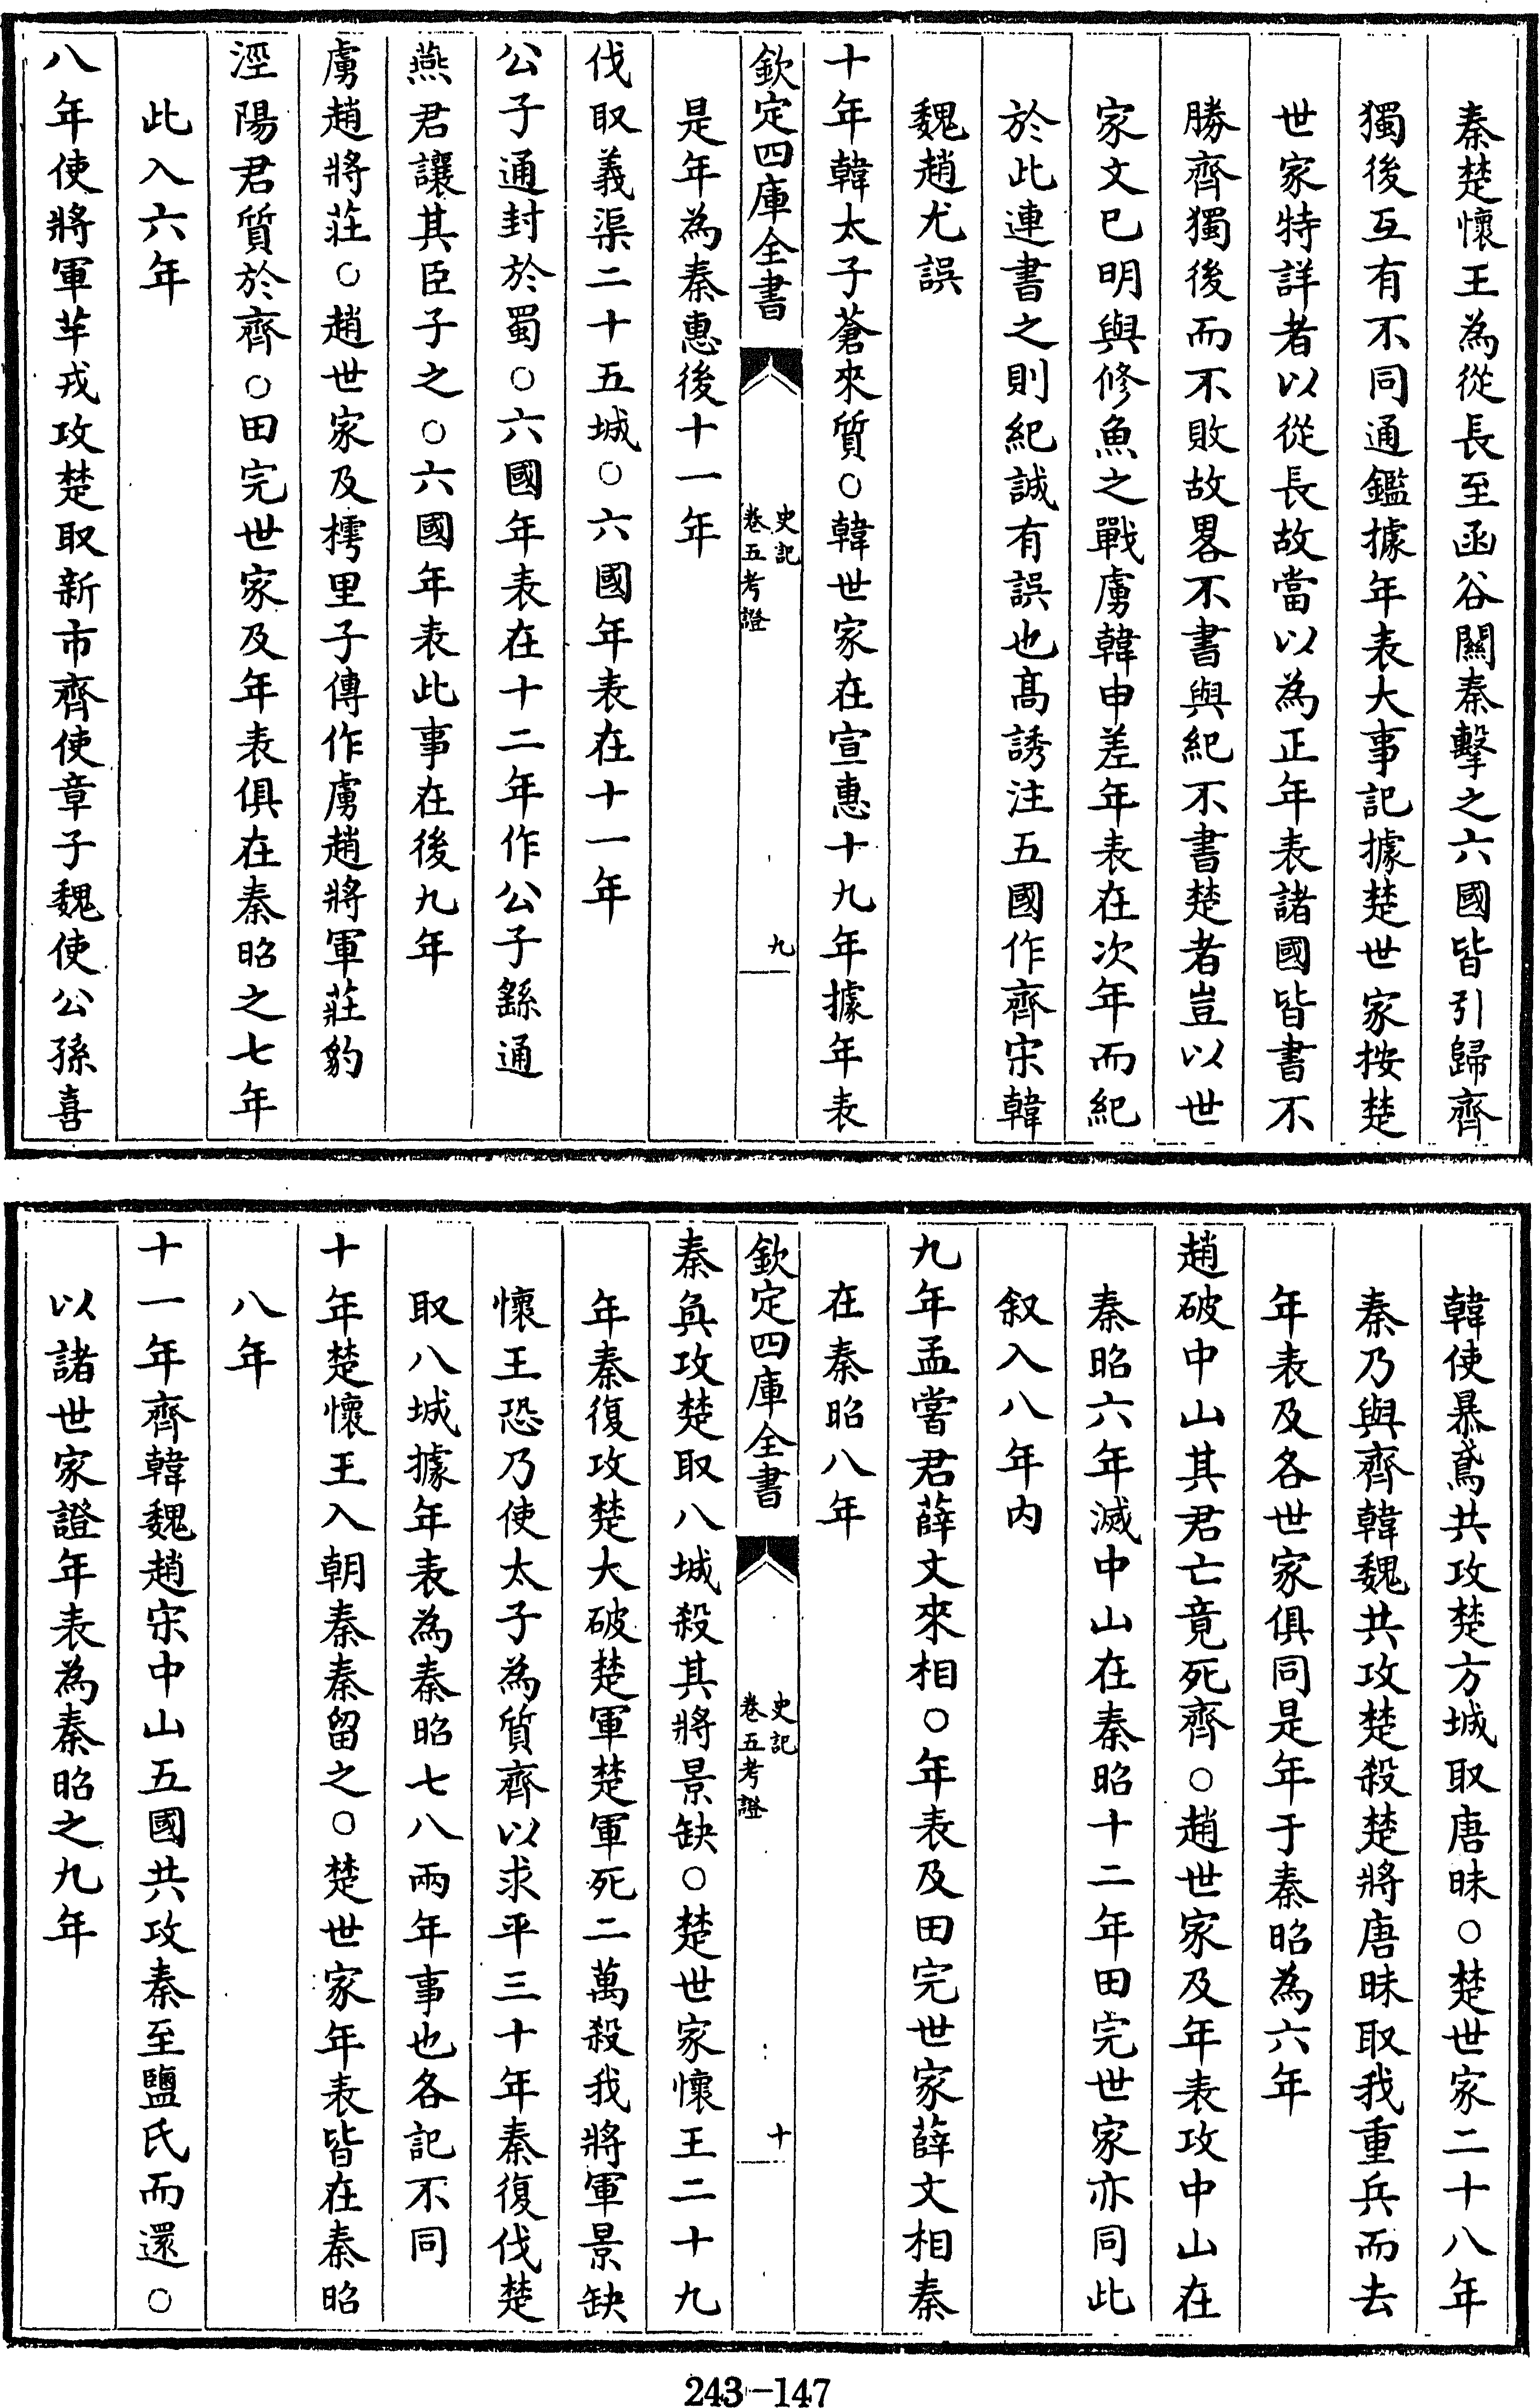 秦楚懷王為從長至函谷關秦擊之六國皆引歸齊
獨後互有不同通鑑據年表大事記據楚世家按楚
世家特詳者以從長故當以為正年表諸國皆書不
勝齊獨後而不敗故畧不書與紀不書楚者豈以世
家文已明與修魚之戰虜韓申差年表在次年而紀
於此連書之則紀誠有誤也高誘注五國作齊宋韓
魏趙尤誤
十年韓太子蒼來質○韓世家在宣惠十九年據年表
欽定四庫全書
史記
卷五考證
九
是年為秦惠後十一年
伐取義渠二十五城○六國年表在十一年
公子通封於蜀○六國年表在十二年作公子繇通
燕君讓其臣子之○六國年表此事在後九年
虜趙將莊○趙世家及樗里子傳作虜趙將軍莊豹
涇陽君質於齊○田完世家及年表俱在秦昭之七年
此入六年
八年使將軍芈戎攻楚取新市齊使章子魏使公孫喜
韓使暴鳶共攻楚方城取唐昧○楚世家二十八年
秦乃與齊韓魏共攻楚殺楚將唐昧取我重兵而去
年表及各世家俱同是年于秦昭為六年
趙破中山其君亡竟死齊○趙世家及年表攻中山在
秦昭六年滅中山在秦昭十二年田完世家亦同此
叙入八年内
九年孟嘗君薛文來相○年表及田完世家薛文相秦
在秦昭八年
欽定四庫全書
史記
卷五考證
十
秦奐攻楚取八城殺其將景缺○楚世家懷王二十九
年秦復攻楚大破楚軍楚軍死二萬殺我將軍景缺
懷王恐乃使太子為質齊以求平三十年秦復伐楚
取八城據年表為秦昭七八兩年事也各記不同
十年楚懷王入朝秦秦留之○楚世家年表皆在秦昭
八年
十一年齊韓魏趙宋中山五國共攻秦至鹽氏而還○
以諸世家證年表為秦昭之九年
243-147